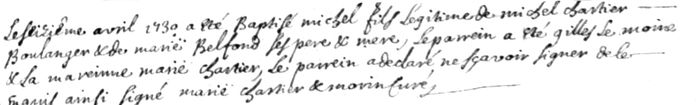 Le seizième avril 1730 a été Baptisé michel fils Legitime de michel chartier
Boulanger & de marie Belfond ses pere & mere, Le parrein a été gilles Le moine
& La mareinne marie chartier, Le parrein a declaré ne sçavoir signer de ce
ainsi signé marie chartier & morin Curé,